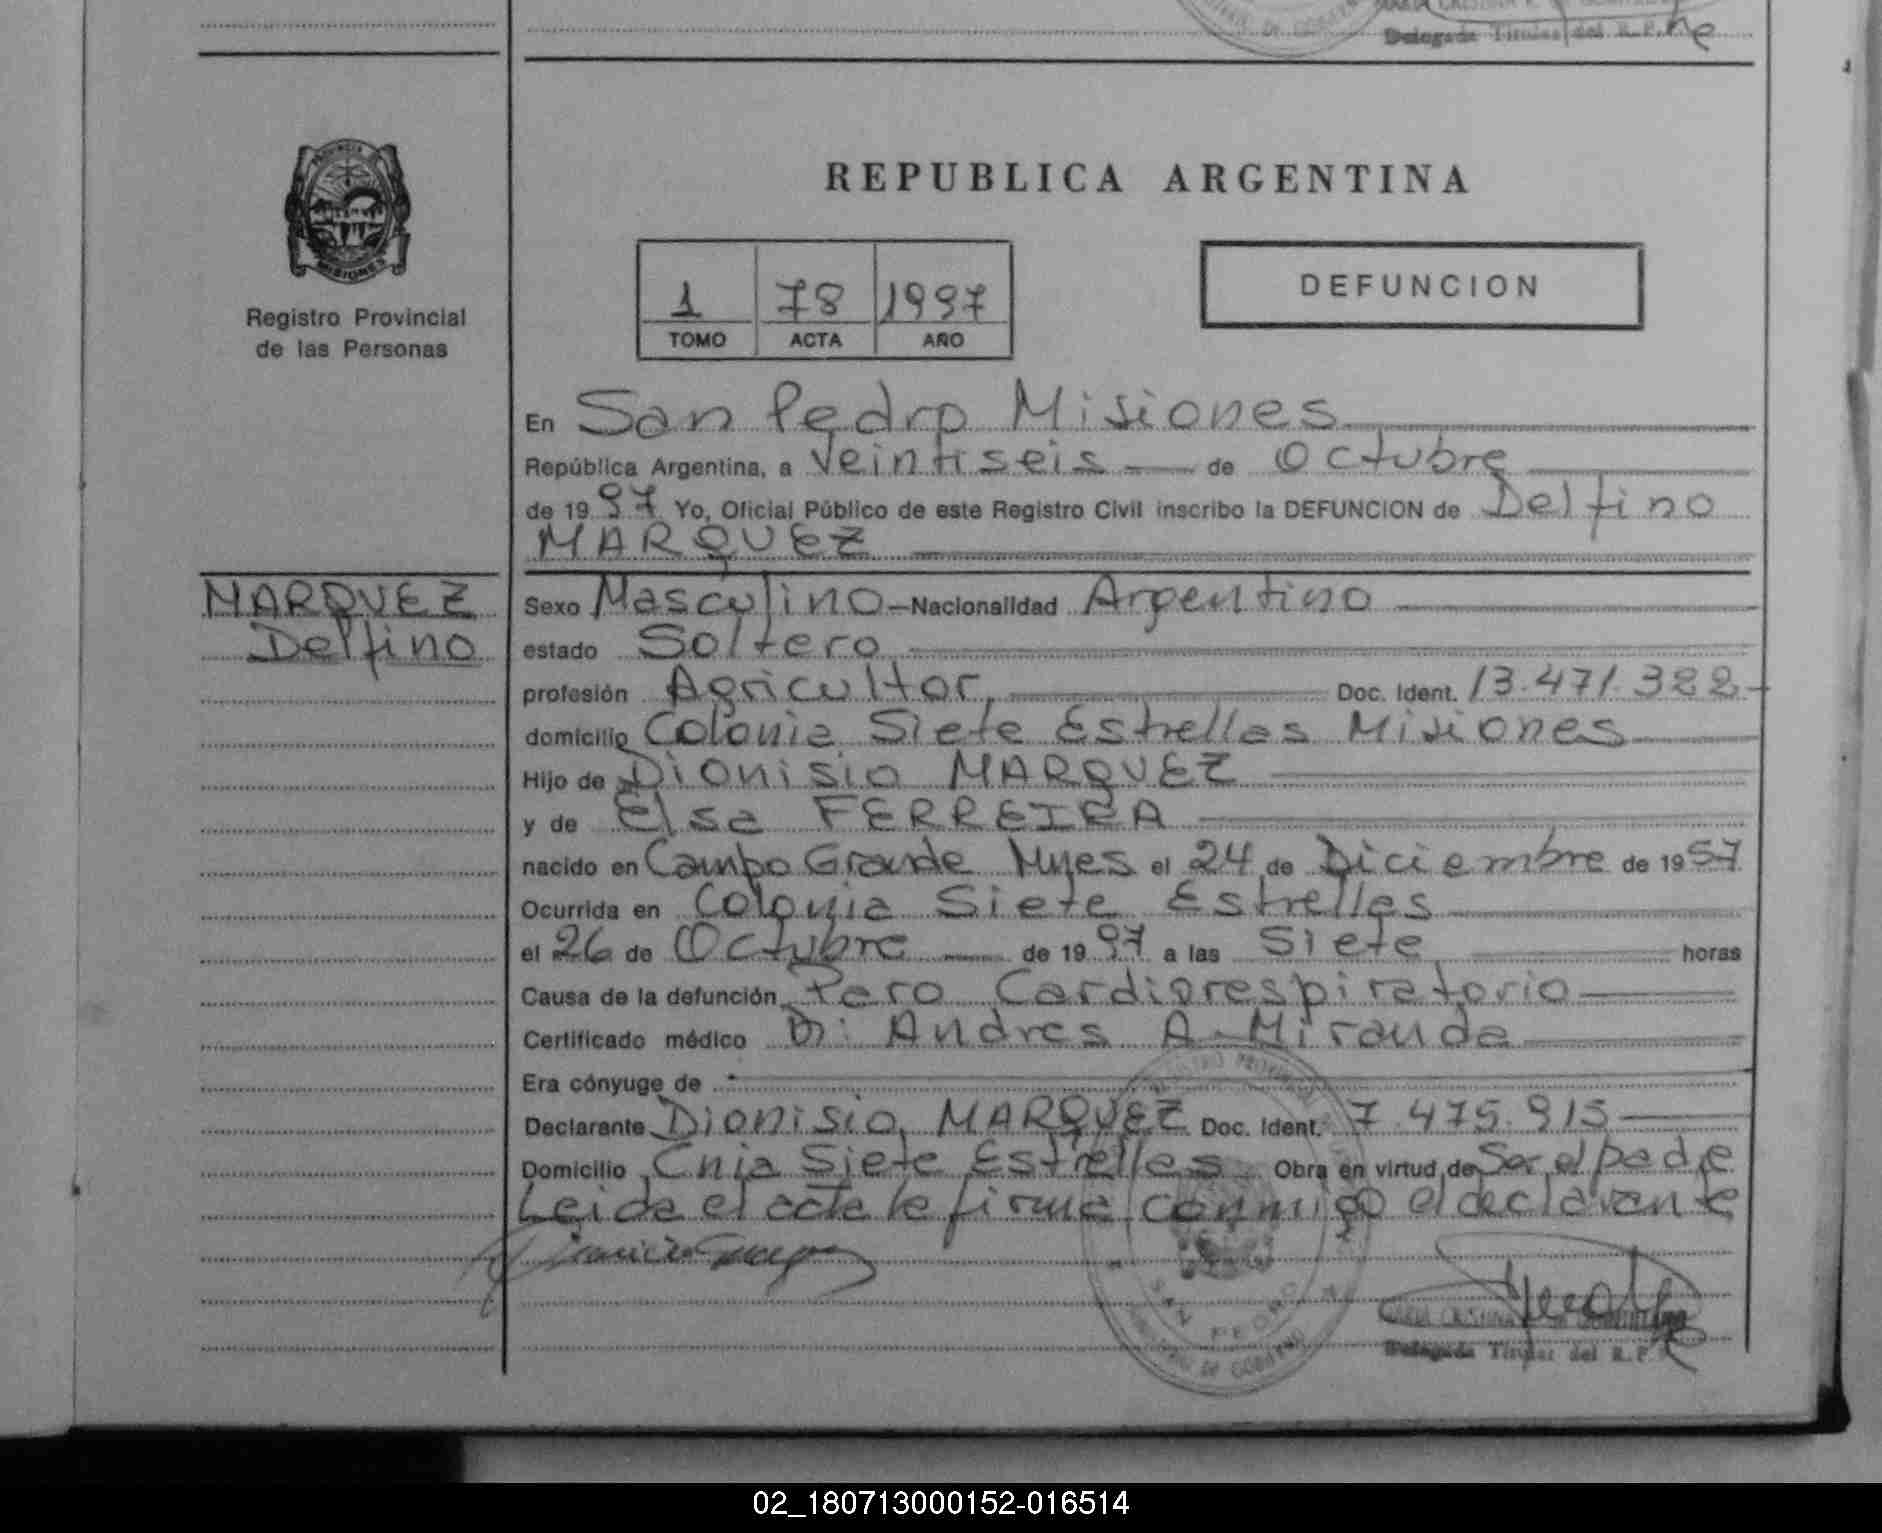 Delegada Titular del R.P.P.
PROVINCIA DE
MISIONES
Registro Provincial
de las Personas
REPUBLICA ARGENTINA
1 78 1997
TOMO ACTA AÑO
DEFUNCION
En San Pedro Misiones
República Argentina, a Veintiseis de Octubre
de 1997 Yo, Oficial Público de este Registro Civil inscribo la DEFUNCION de Delfino
MARQUEZ
MARQUEZ
Delfino
Sexo Masculino Nacionalidad Argentino
estado Soltero
profesión Agricultor Doc. Ident. 13.471.322
domicilio Colonia Siete Estrellas Misiones
Hijo de Dionisio MARQUEZ
y de Elsa FERREIRA
nacido en Campo Grande Mnes el 24 de Diciembre de 1957
Ocurrida en Colonia Siete Estrellas
el 26 de Octubre de 1997 a las Siete horas
Causa de la defunción Paro Cardiorespiratorio
Certificado médico Dr. Andres A. Miranda
Era cónyuge de
Declarante Dionisio MARQUEZ Doc. Ident. 7.475.915
Domicilio Cnia Siete Estrellas Obra en virtud de Ser el padre
Leida el acta la firma conmigo el declarante
REGISTRO PROVINCIAL
SAN PEDRO
MINISTERIO DE GOBIERNO
MARIA CRISTINA
Delegada Titular del R.P.P.
02_180713000152-016514